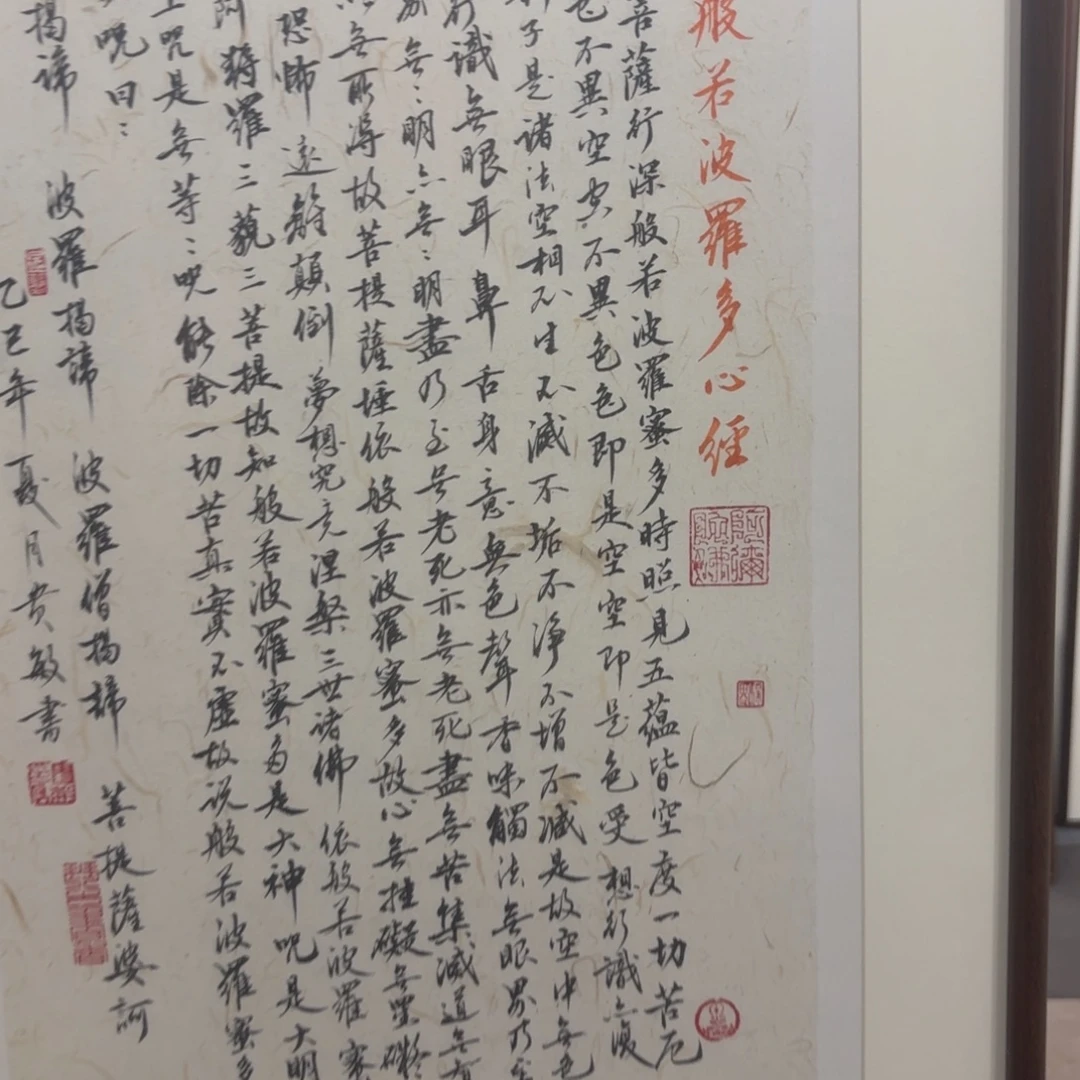 般若波羅多心經
菩薩行深般若波羅蜜多時照見五蘊皆空度一切苦厄
色不異空空不異色色即是空空即是色受想行識亦復
子是諸法空相不生不滅不垢不淨不增不減是故空中無色
行識無眼耳鼻舌身意無色聲香味觸法無眼界乃至
無無:明亦無:明盡乃至無老死亦無老死盡無苦集滅道無
以無所得故菩提薩埵依般若波羅蜜多故心無挂礙無罣礙
恐怖遠離顛倒夢想究竟涅槃三世諸佛依般若波羅蜜
阿耨羅三藐三菩提故知般若波羅蜜多是大神咒是大明
上咒是無等:咒能除一切苦真實不虛故說般若波羅蜜多
咒曰:
揭諦 波羅揭諦 波羅僧揭諦 菩提薩婆訶
乙巳年夏月貴敏書